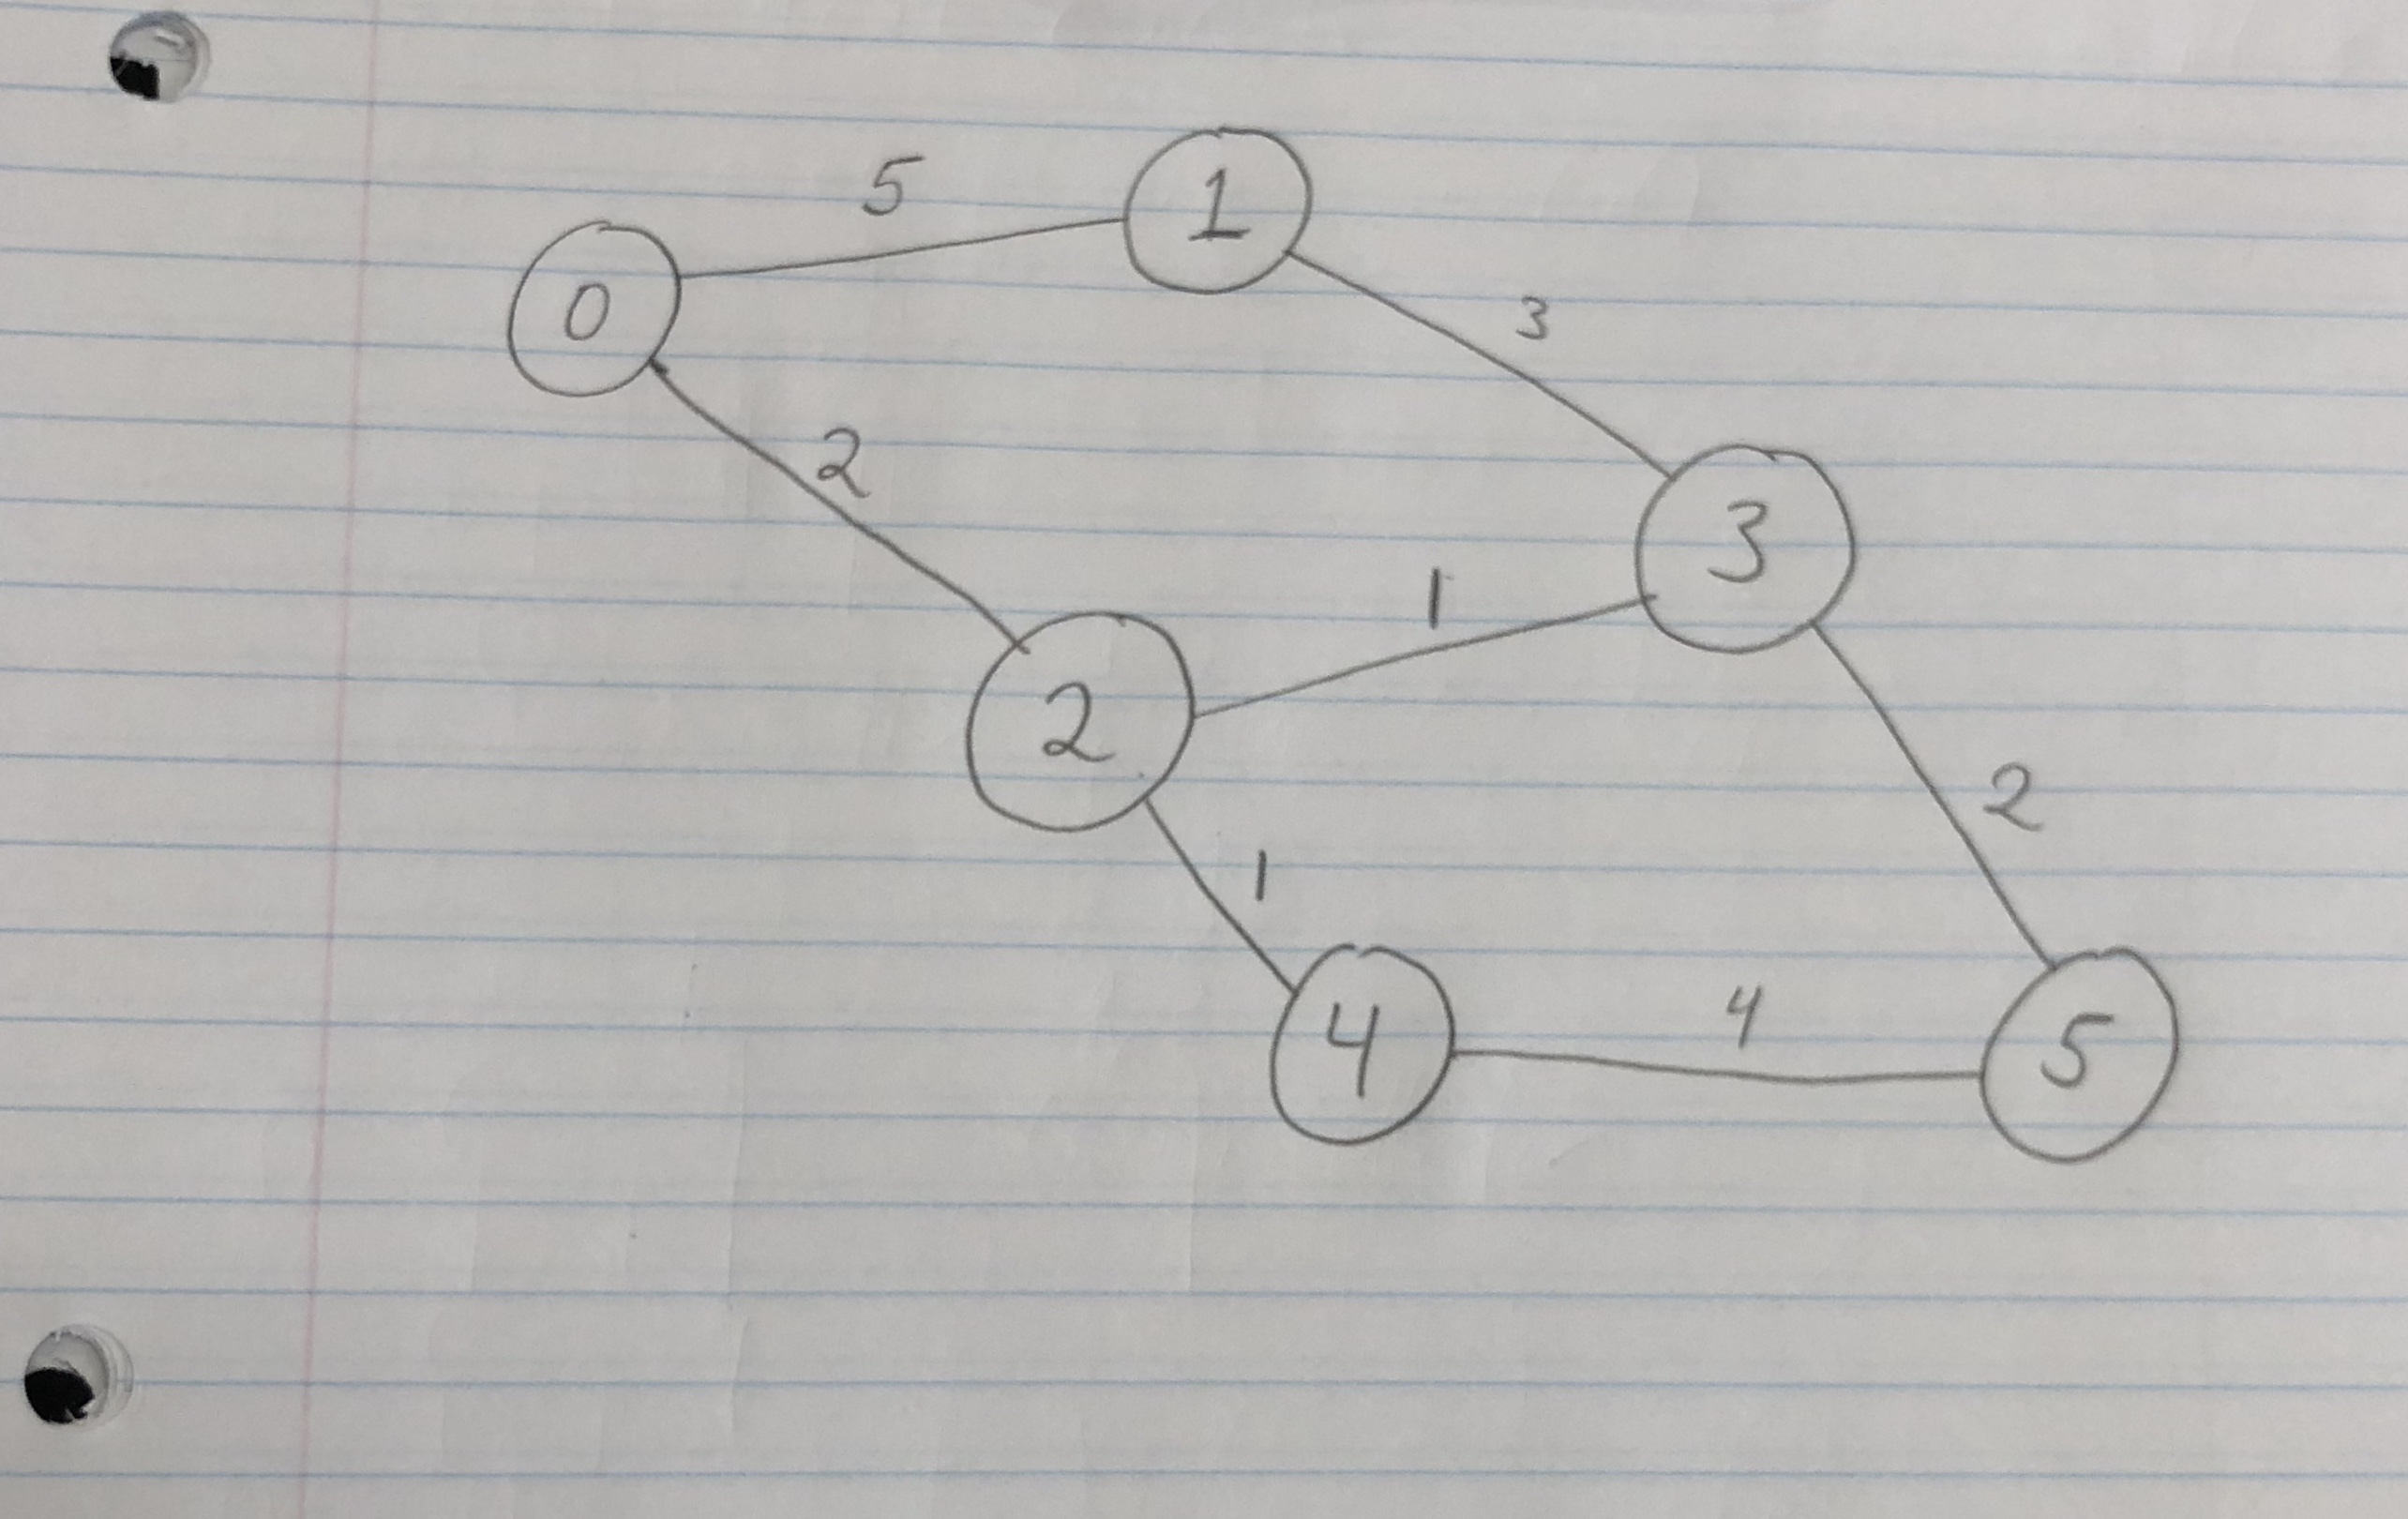 5
1
0
3
2
3
1
2
2
1
4
4
5